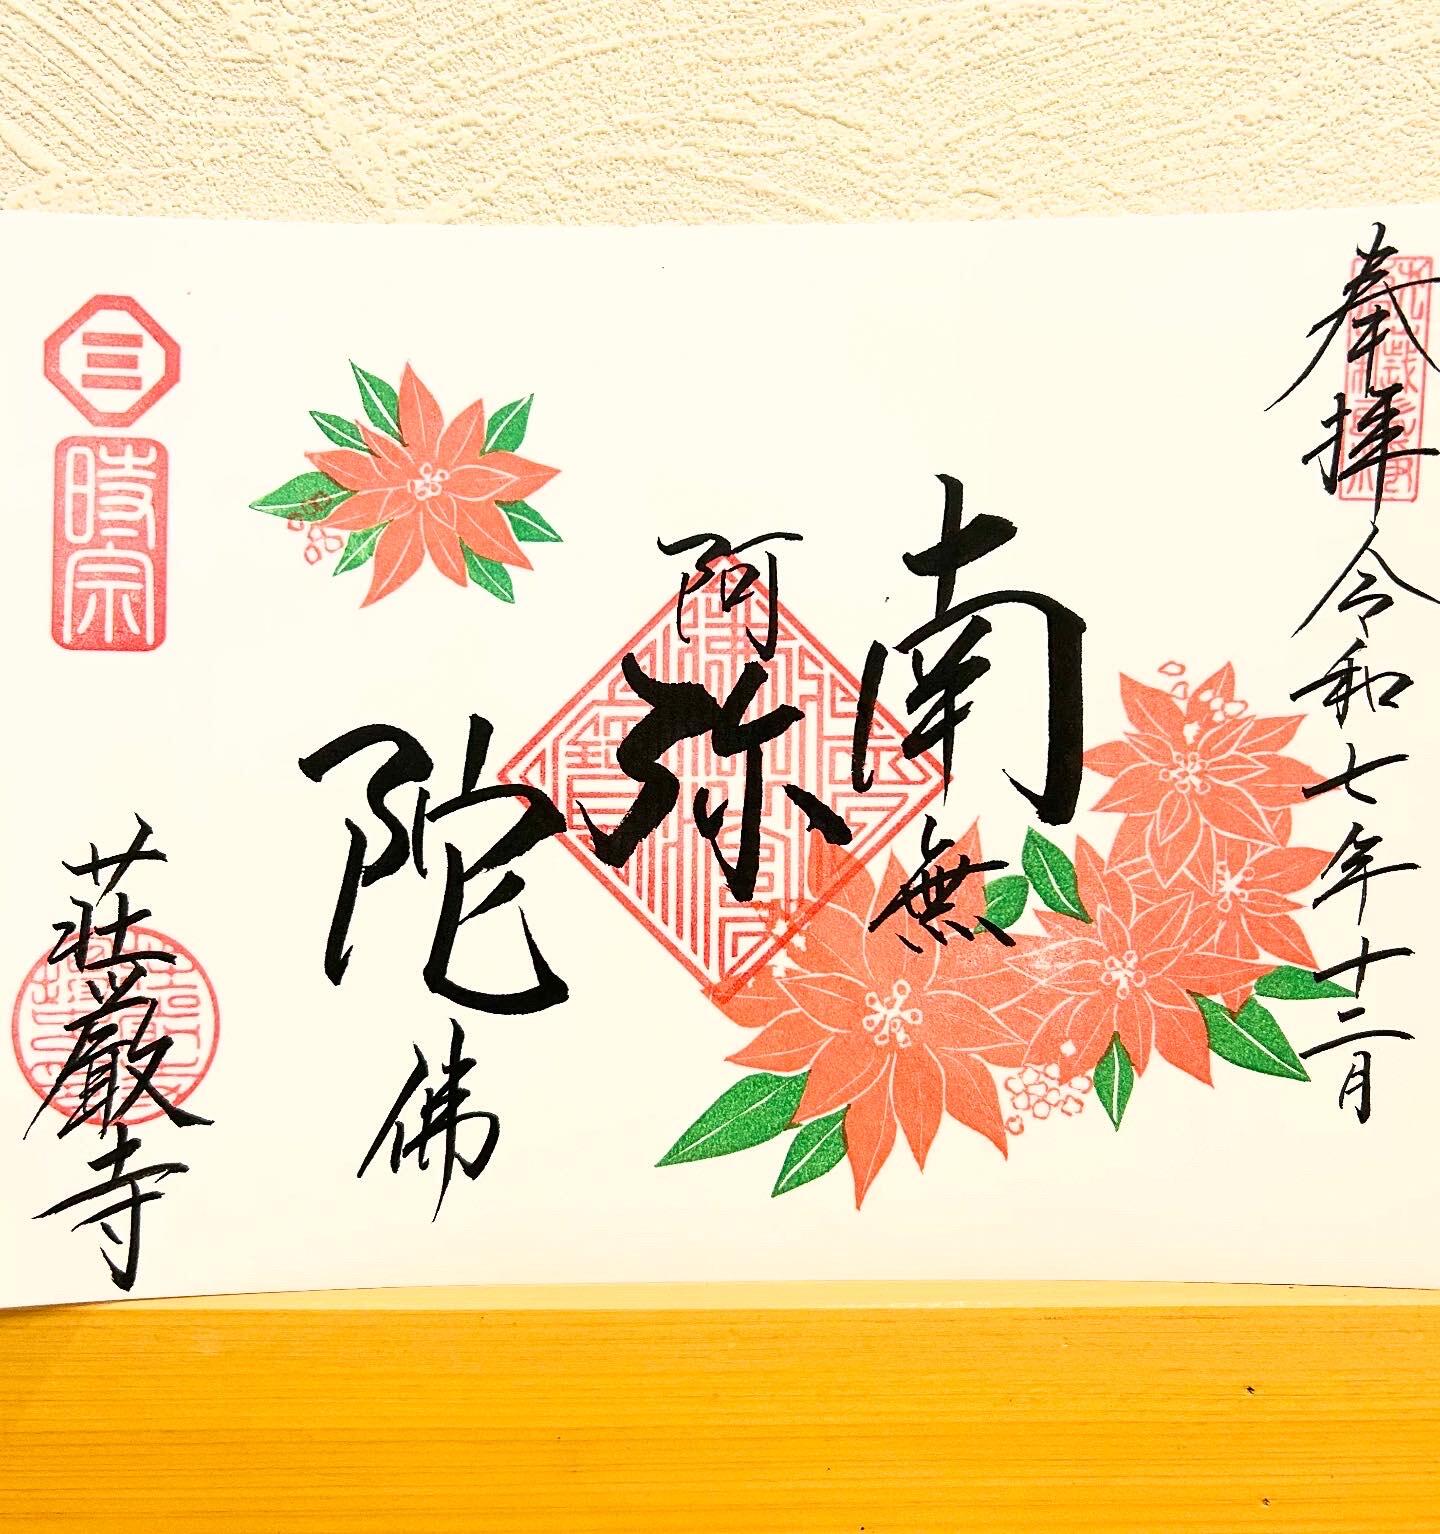 奉拝 令和七年十二月
南無
阿弥
陀佛
時宗
荘厳寺